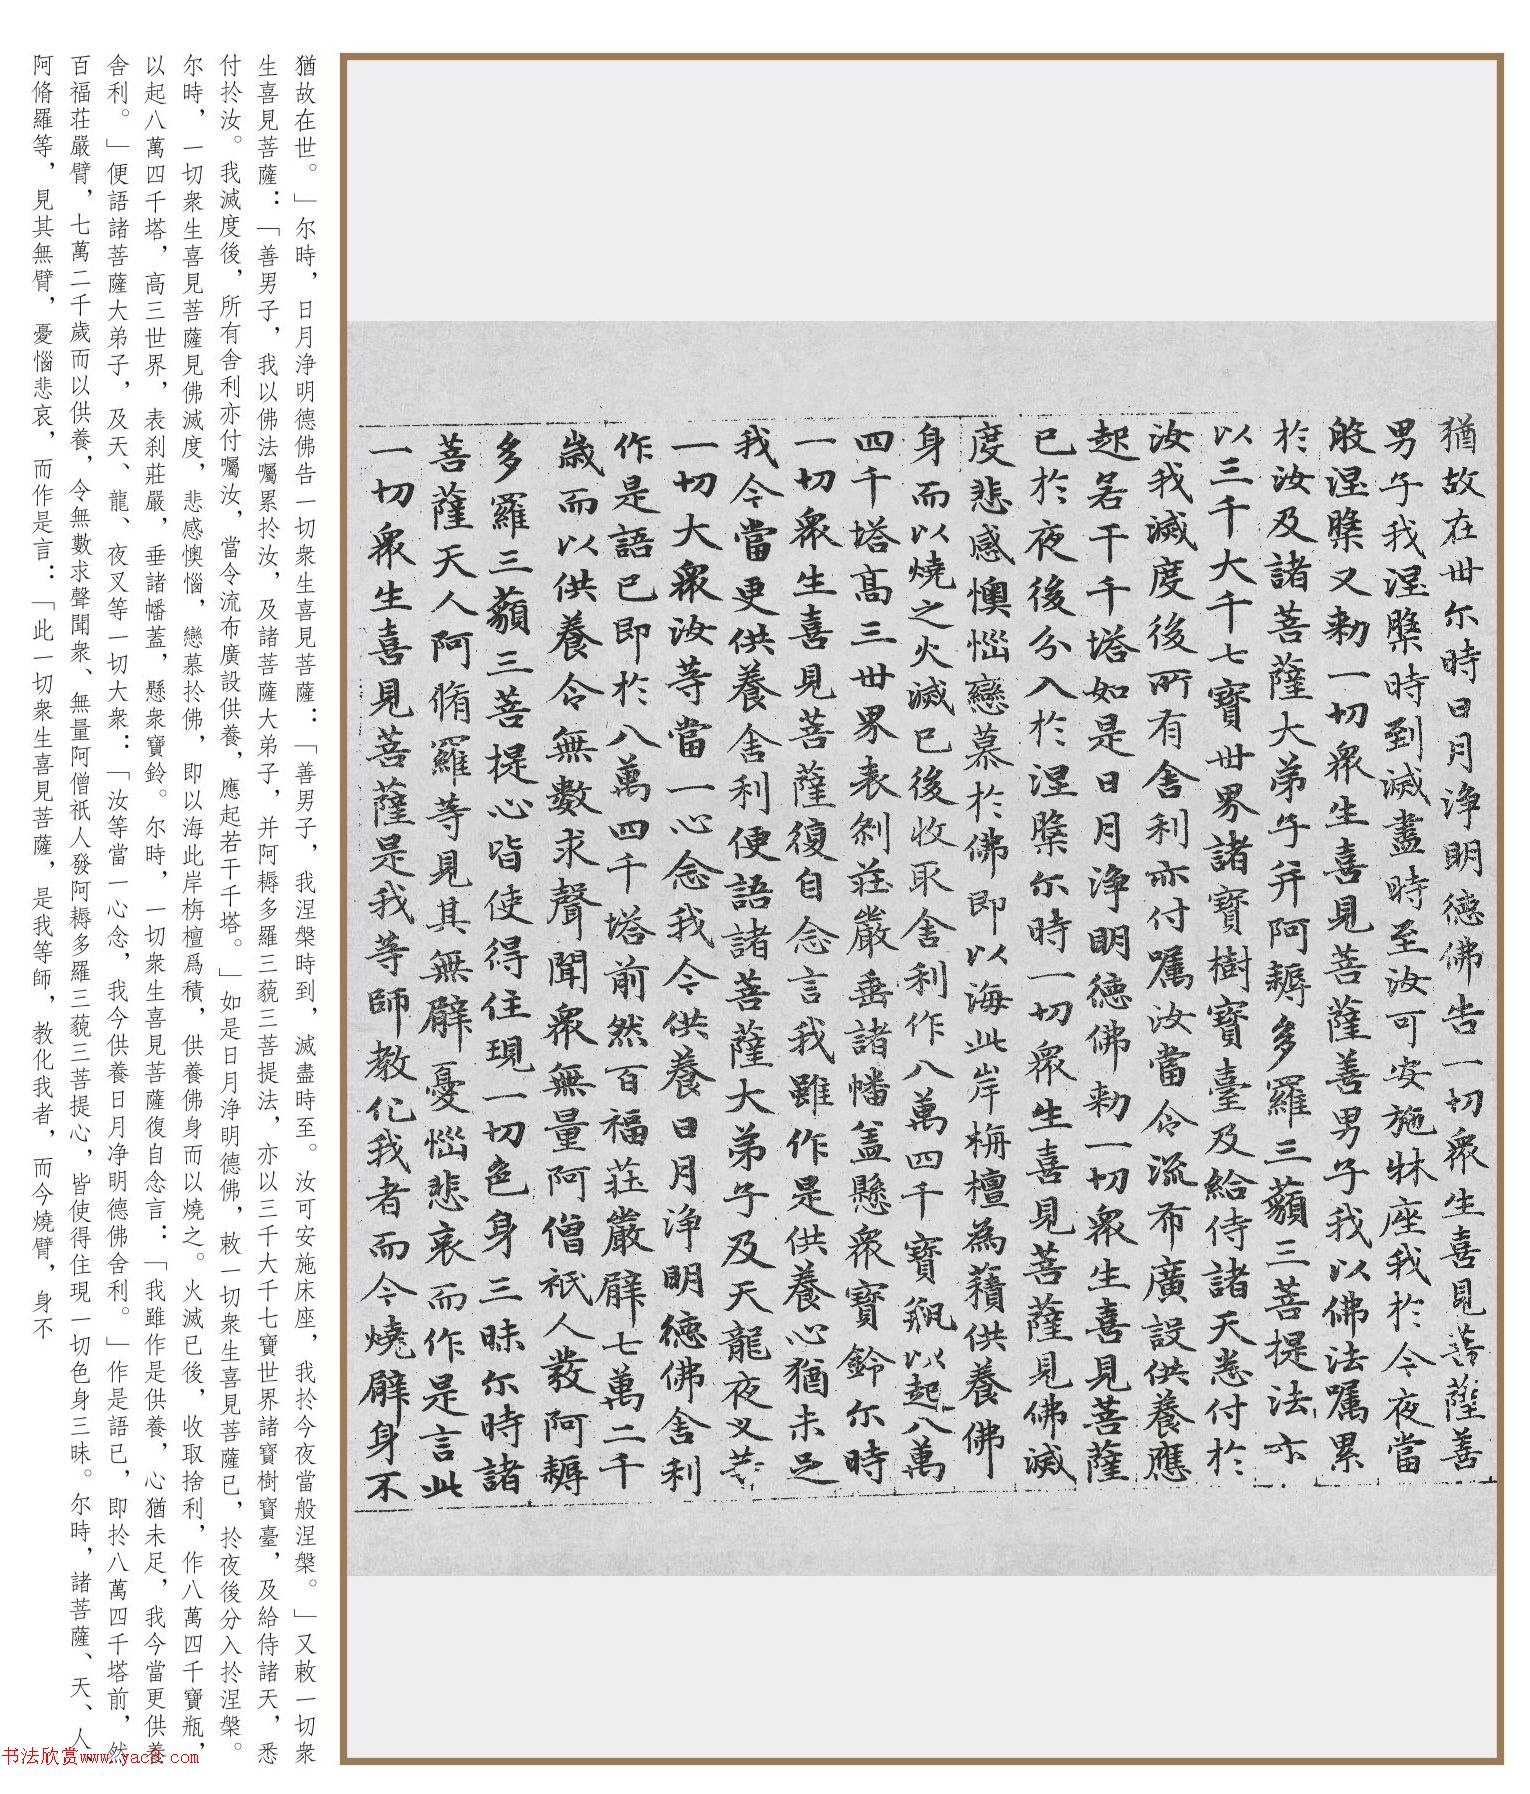 猶故在世尓時日月淨明德佛告一切衆生喜見菩薩善
男子我涅槃時到滅盡時至汝可安施牀座我於今夜當
般涅槃又勑一切衆生喜見菩薩善男子我以佛法囑累
於汝及諸菩薩大弟子并阿耨多羅三藐三菩提法亦
以三千大千七寶世界諸寶樹寶臺及給侍諸天悉付於
汝我滅度後所有舍利亦付囑汝當令流布廣設供養應
起若干千塔如是日月淨明德佛勑一切衆生喜見菩薩
已於夜後分入於涅槃尓時一切衆生喜見菩薩見佛滅
度悲感懊惱戀慕於佛即以海此岸栴檀為積供養佛
身而以燒之火滅已後收取舍利作八萬四千寶瓶以起八萬
四千塔高三世界表刹莊嚴垂諸幡盖懸衆寶鈴尓時
一切衆生喜見菩薩復自念言我雖作是供養心猶未足
我今當更供養舍利便語諸菩薩大弟子及天龍夜叉等
一切大衆汝等當一心念我今供養日月淨明德佛舍利
作是語已即於八萬四千塔前然百福莊嚴臂七萬二千
歲而以供養令無數求聲聞衆無量阿僧祇人發阿耨
多羅三藐三菩提心皆使得住現一切色身三昧尓時諸
菩薩天人阿脩羅等見其無臂憂惱悲哀而作是言此
一切衆生喜見菩薩是我等師教化我者而今燒臂身不
猶故在世。」尓時，日月淨明德佛告一切衆生喜見菩薩：「善男子，我涅槃時到，滅盡時至。汝可安施床座，我扵今夜當般涅槃。」又敕一切衆
生喜見菩薩：「善男子，我以佛法囑累扵汝，及諸菩薩大弟子，并阿耨多羅三藐三菩提法，亦以三千大千七寶世界諸寶樹寶臺，及給侍諸天，悉
付扵汝。我滅度後，所有舍利亦付囑汝，當令流布廣設供養，應起若干千塔。」如是日月淨明德佛，敕一切衆生喜見菩薩已，扵夜後分入扵涅槃。
尓時，一切衆生喜見菩薩見佛滅度，悲感懊惱，戀慕扵佛，即以海此岸栴檀爲積，供養佛身而以燒之。火滅已後，收取捨利，作八萬四千寶瓶，
以起八萬四千塔，高三世界，表刹莊嚴，垂諸幡蓋，懸衆寶鈴。尓時，一切衆生喜見菩薩復自念言：「我雖作是供養，心猶未足，我今當更供養
舍利。」便語諸菩薩大弟子，及天、龍、夜叉等一切大衆：「汝等當一心念，我今供養日月净明德佛舍利。」作是語已，即扵八萬四千塔前，然
百福莊嚴臂，七萬二千歲而以供養，令無數求聲聞衆、無量阿僧祇人發阿耨多羅三藐三菩提心，皆使得住現一切色身三昧。尓時，諸菩薩、天、人、
阿脩羅等，見其無臂，憂惱悲哀，而作是言：「此一切衆生喜見菩薩，是我等師，教化我者，而今燒臂，身不
书法欣赏www.yac8.com